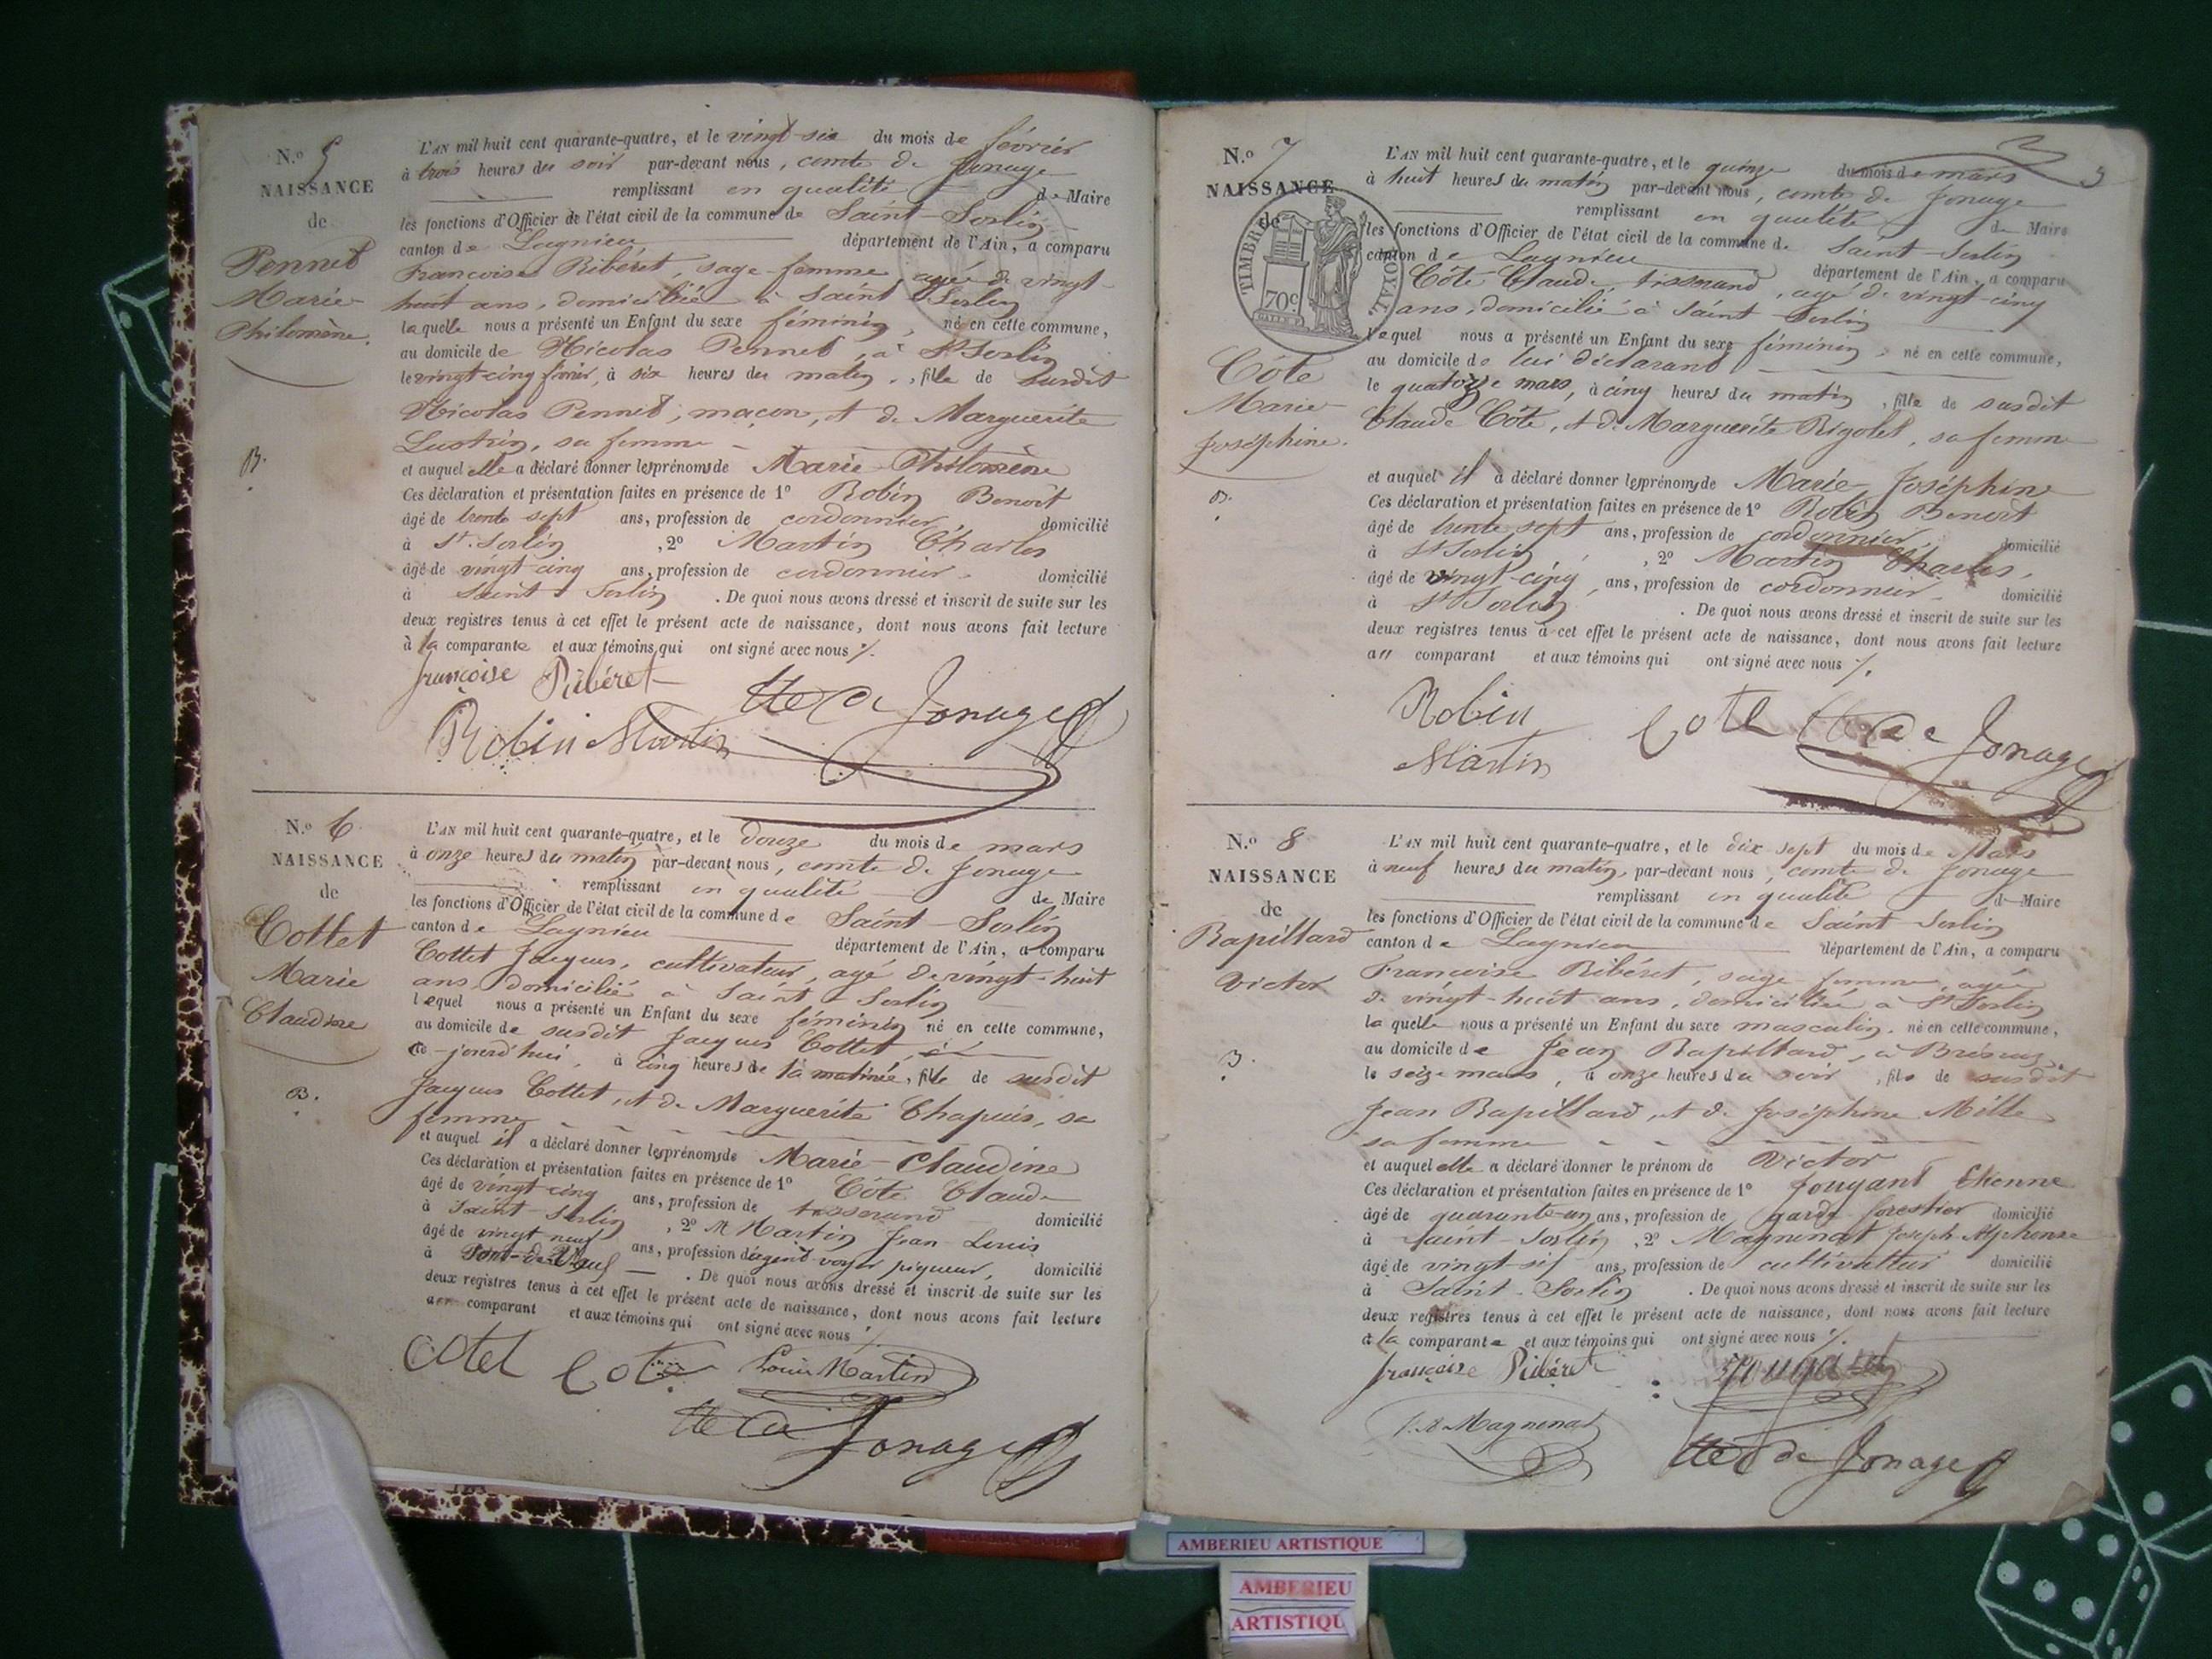 N.o 5
NAISSANCE
de
Pennet
Marie
Philomène.
B.
L'AN mil huit cent quarante-quatre, et le vingt-six du mois de février
à trois heures du soir par-devant nous, comte de Jonage
remplissant en qualité de Maire
les fonctions d'Officier de l'état civil de la commune de Saint-Sorlin
canton de Lagnieu département de l'Ain, a comparu
Françoise Ribéret, sage-femme agée de vingt-
huit ans, domiciliée à Saint Sorlin
laquelle nous a présenté un Enfant du sexe féminin, né en cette commune,
au domicile de Nicolas Pennet, à St Sorlin
le vingt-cinq février, à six heures du matin, fille de susdit
Nicolas Pennet, maçon, et de Marguerite
Lustrin, sa femme
et auquel elle a déclaré donner les prénoms de Marie-Philomène
Ces déclaration et présentation faites en présence de 1o Robin Benoît
âgé de trente sept ans, profession de cordonnier domicilié
à St. Sorlin, 2o Martin Charles
âgé de vingt-cinq ans, profession de cordonnier. domicilié
à Saint-Sorlin. De quoi nous avons dressé et inscrit de suite sur les
deux registres tenus à cet effet le présent acte de naissance, dont nous avons fait lecture
à la comparante et aux témoins qui ont signé avec nous ./.
françoise Ribéret
Cte de Jonage
Robin Martin
N.o 6
NAISSANCE
de
Cottet
Marie
Claudine
B.
L'AN mil huit cent quarante-quatre, et le douze du mois de mars
à onze heures du matin par-devant nous, comte de Jonage
remplissant en qualité de Maire
les fonctions d'Officier de l'état civil de la commune de Saint-Sorlin
canton de Lagnieu département de l'Ain, a comparu
Cottet Jacques, cultivateur, agé de vingt-huit
ans domicilié à Saint-Sorlin
lequel nous a présenté un Enfant du sexe féminin né en cette commune,
au domicile de susdit Jacques Cottet,
ce-jourd'hui, à cinq heures de la matinée, fille de susdit
Jacques Cottet, et de Marguerite Chapuis, sa
femme
et auquel il a déclaré donner les prénoms de Marie-Claudine
Ces déclaration et présentation faites en présence de 1o Côte Claude
âgé de vingt-cinq ans, profession de tisserand domicilié
à Saint-Sorlin, 2o M Martin Jean-Louis
âgé de vingt neuf ans, profession d'agent voyer piqueur, domicilié
à Pont-de-Veyle. De quoi nous avons dressé et inscrit de suite sur les
deux registres tenus à cet effet le présent acte de naissance, dont nous avons fait lecture
au comparant et aux témoins qui ont signé avec nous ./.
Cotet Cote Louis Martin
Cte de Jonage
N.o 7
NAISSANCE
de
TIMBRE ROYAL
70c
Côte
Marie
Joséphine.
B.
3
L'AN mil huit cent quarante-quatre, et le quinze du mois de mars
à huit heures du matin par-devant nous, comte de Jonage
remplissant en qualité de Maire
les fonctions d'Officier de l'état civil de la commune de Saint-Sorlin
canton de Lagnieu département de l'Ain, a comparu
Côte Claude, tisserand, agé de vingt-cinq
ans, domicilié à Saint-Sorlin
lequel nous a présenté un Enfant du sexe féminin, né en cette commune,
au domicile de lui déclarant
le quatorze mars, à cinq heures du matin, fille de susdit
Claude Côte, et de Marguerite Rigolet, sa femme
et auquel il a déclaré donner les prénoms de Marie-Joséphine
Ces déclaration et présentation faites en présence de 1o Robin Benoît
âgé de trente sept ans, profession de cordonnier, domicilié
à St Sorlin, 2o Martin Charles,
âgé de vingt-cinq ans, profession de cordonnier domicilié
à St Sorlin. De quoi nous avons dressé et inscrit de suite sur les
deux registres tenus à cet effet le présent acte de naissance, dont nous avons fait lecture
au comparant et aux témoins qui ont signé avec nous ./.
Robin Cote Cte de Jonage
Martin
N.o 8
NAISSANCE
de
Rapillard
Victor
B.
L'AN mil huit cent quarante-quatre, et le dix sept du mois de Mars
à neuf heures du matin, par-devant nous, comte de Jonage
remplissant en qualité de Maire
les fonctions d'Officier de l'état civil de la commune de Saint Sorlin
canton de Lagnieu département de l'Ain, a comparu
Françoise Ribéret, sage femme, agée
de vingt-huit ans, domiciliée à St Sorlin
laquelle nous a présenté un Enfant du sexe masculin, né en cette commune,
au domicile de Jean Rapillard, à
le seize mars, à onze heures du soir, fils de susdit
Jean Rapillard, et de Joséphine Mille
sa femme
et auquel elle a déclaré donner le prénom de Victor
Ces déclaration et présentation faites en présence de 1o Jouyant Etienne
âgé de quarante-un ans, profession de garde forestier domicilié
à Saint-Sorlin, 2o Magnenat Joseph-Alphonse
âgé de vingt-six ans, profession de cultivateur domicilié
à Saint-Sorlin. De quoi nous avons dressé et inscrit de suite sur les
deux registres tenus à cet effet le présent acte de naissance, dont nous avons fait lecture
à la comparante et aux témoins qui ont signé avec nous ./.
françoise Ribéret Jouyant
J. A Magnenat Cte de Jonage
AMBERIEU ARTISTIQUE
AMBERIEU
ARTISTIQU